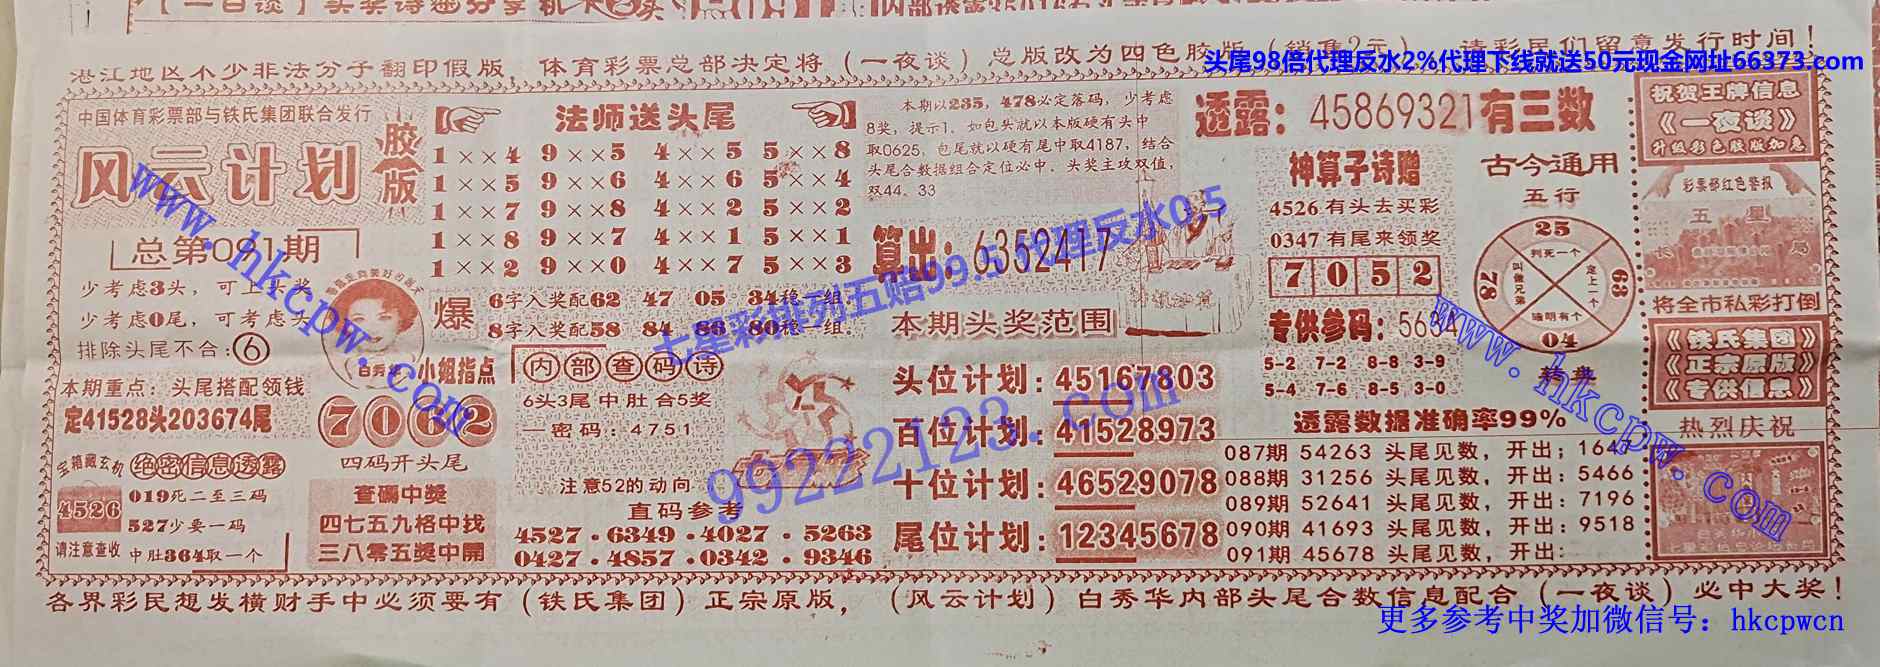 湛江地区不少非法分子翻印假版，体育彩票总部决定将（一夜谈）总版改为四色胶版（销售2元），请彩民们留意发行时间！
头尾98倍代理反水2%代理下线就送50元现金网址66373.com
中国体育彩票部与铁氏集团联合发行
风云计划
胶版
总第091期
少考虑3头，可上头奖
少考虑0尾，可考虑头
排除头尾不合：6
本期重点：头尾搭配领钱
定41528头203674尾
白秀华
小姐指点
7062
四码开头尾
宝箱藏玄机
绝密信息透露
4526
请注意查收
019死二至三码
527少要一码
中肚364取一个
查碼中獎
四七五九格中找
三八零五獎中開
法师送头尾
1××4 9××5 4××5 5××8
1××5 9××6 4××6 5××4
1××7 9××8 4××2 5××2
1××8 9××7 4××1 5××1
1××2 9××0 4××7 5××3
爆
6字入奖配62 47 05 34稳一组
8字入奖配58 84 86 80稳一组
内部查码诗
6头3尾中肚合5奖
一密码：4751
注意52的动向
直码参考
4527·6349·4027·5263
0427·4857·0342·9346
本期以235，478必定落码，少考虑
8奖，提示1、如包头就以本版硬有头中
取0625，包尾就以硬有尾中取4187，结合
头尾合数据组合定位必中、头奖主攻双值，
双44、33
算出：6352417
本期头奖范围
头位计划：45167803
百位计划：41528973
十位计划：46529078
尾位计划：12345678
透露：45869321有三数
神算子诗赠
4526有头去买彩
0347有尾来领奖
7052
专供参码：5634
5-2 7-2 8-8 3-9
5-4 7-6 8-5 3-0
古今通用
五行
25
判死一个
78
叫做兄弟
定上一个
63
04
透露数据准确率99%
087期 54263 头尾见数，开出；1647
088期 31256 头尾见数，开出：5466
089期 52641 头尾见数，开出：7196
090期 41693 头尾见数，开出：9518
091期 45678 头尾见数，开出：
祝贺王牌信息
《一夜谈》
升级彩色胶版加急
彩票部红色警报
五星
将全市私彩打倒
《铁氏集团》
《正宗原版》
《专供信息》
热烈庆祝
各界彩民想发横财手中必须要有（铁氏集团）正宗原版，（风云计划）白秀华内部头尾合数信息配合（一夜谈）必中大奖！
www.hkcpw.com
七星彩排列五赔99.5代理反水0.5
99222123.com
www.hkcpw.com
更多参考中奖加微信号：hkcpwcn